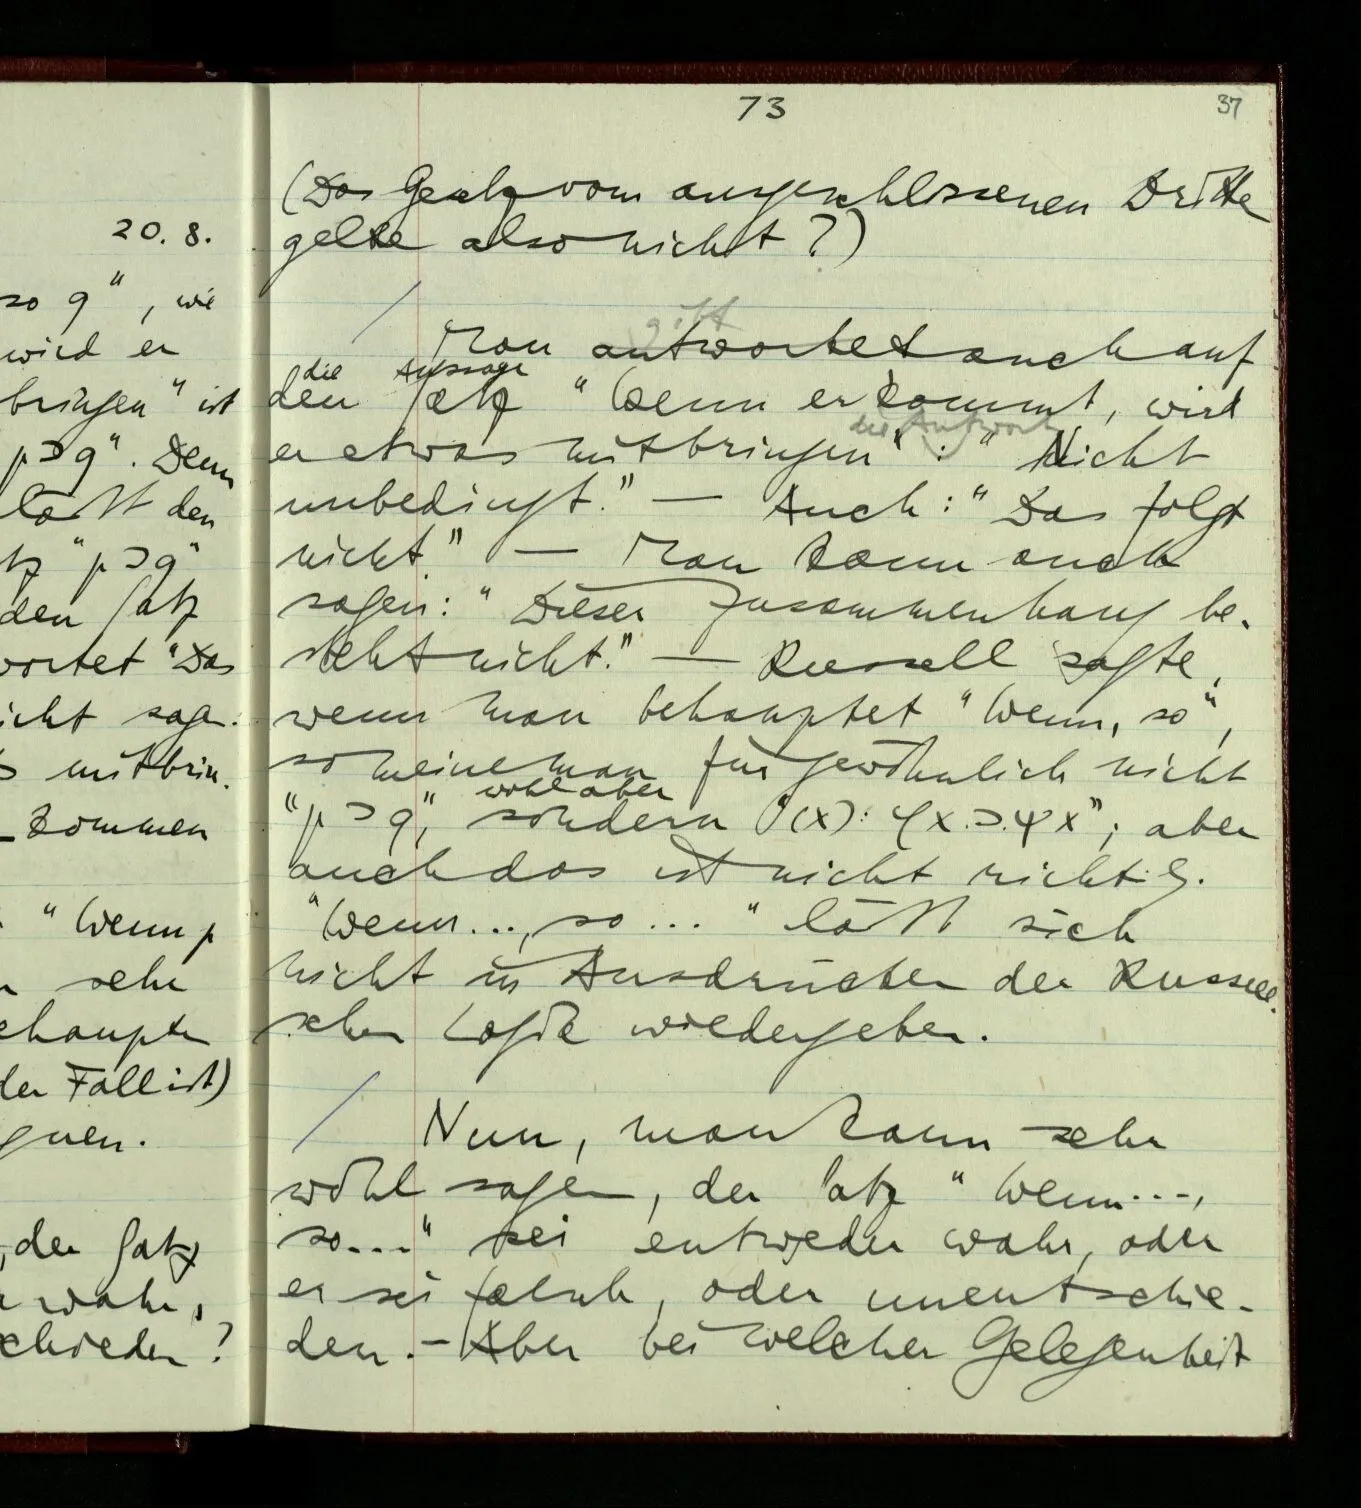 20. 8.
so q", wie
wird er
bringen" ist
p⊃q". Denn
läßt den
tz "p⊃q"
den Satz
wortet "Das
icht sagen:
mitbrin-
kommen
"Wenn p
sehr
ehaupten
der Fall ist)
gnen.
, den Satz
wahr,
chieden?
73
37
(Das Gesetz vom ausgeschlossenen Dritte
gelte also nicht?)
gibt
Man antwortet auch auf
die Aussage
den Satz "Wenn er kommt, wird
die Antwort
er etwas mitbringen": "Nicht
unbedingt." — Auch: "Das folgt
nicht." — Man kann auch
sagen: "Dieser Zusammenhang be-
steht nicht." — Russell sagte,
wenn man behauptet "Wenn, so",
so meine man für gewöhnlich nicht
wohl aber
"p⊃q", sondern "(x): φx.⊃.ψx"; aber
auch das ist nicht richtig.
"Wenn..., so..." läßt sich
nicht in Ausdrücken der Russell-
schen Logik wiedergeben.
Nun, man kann sehr
wohl sagen, der Satz "Wenn...,
so..." sei entweder wahr, oder
er sei falsch, oder unentschie-
den. – Aber bei welcher Gelegenheit